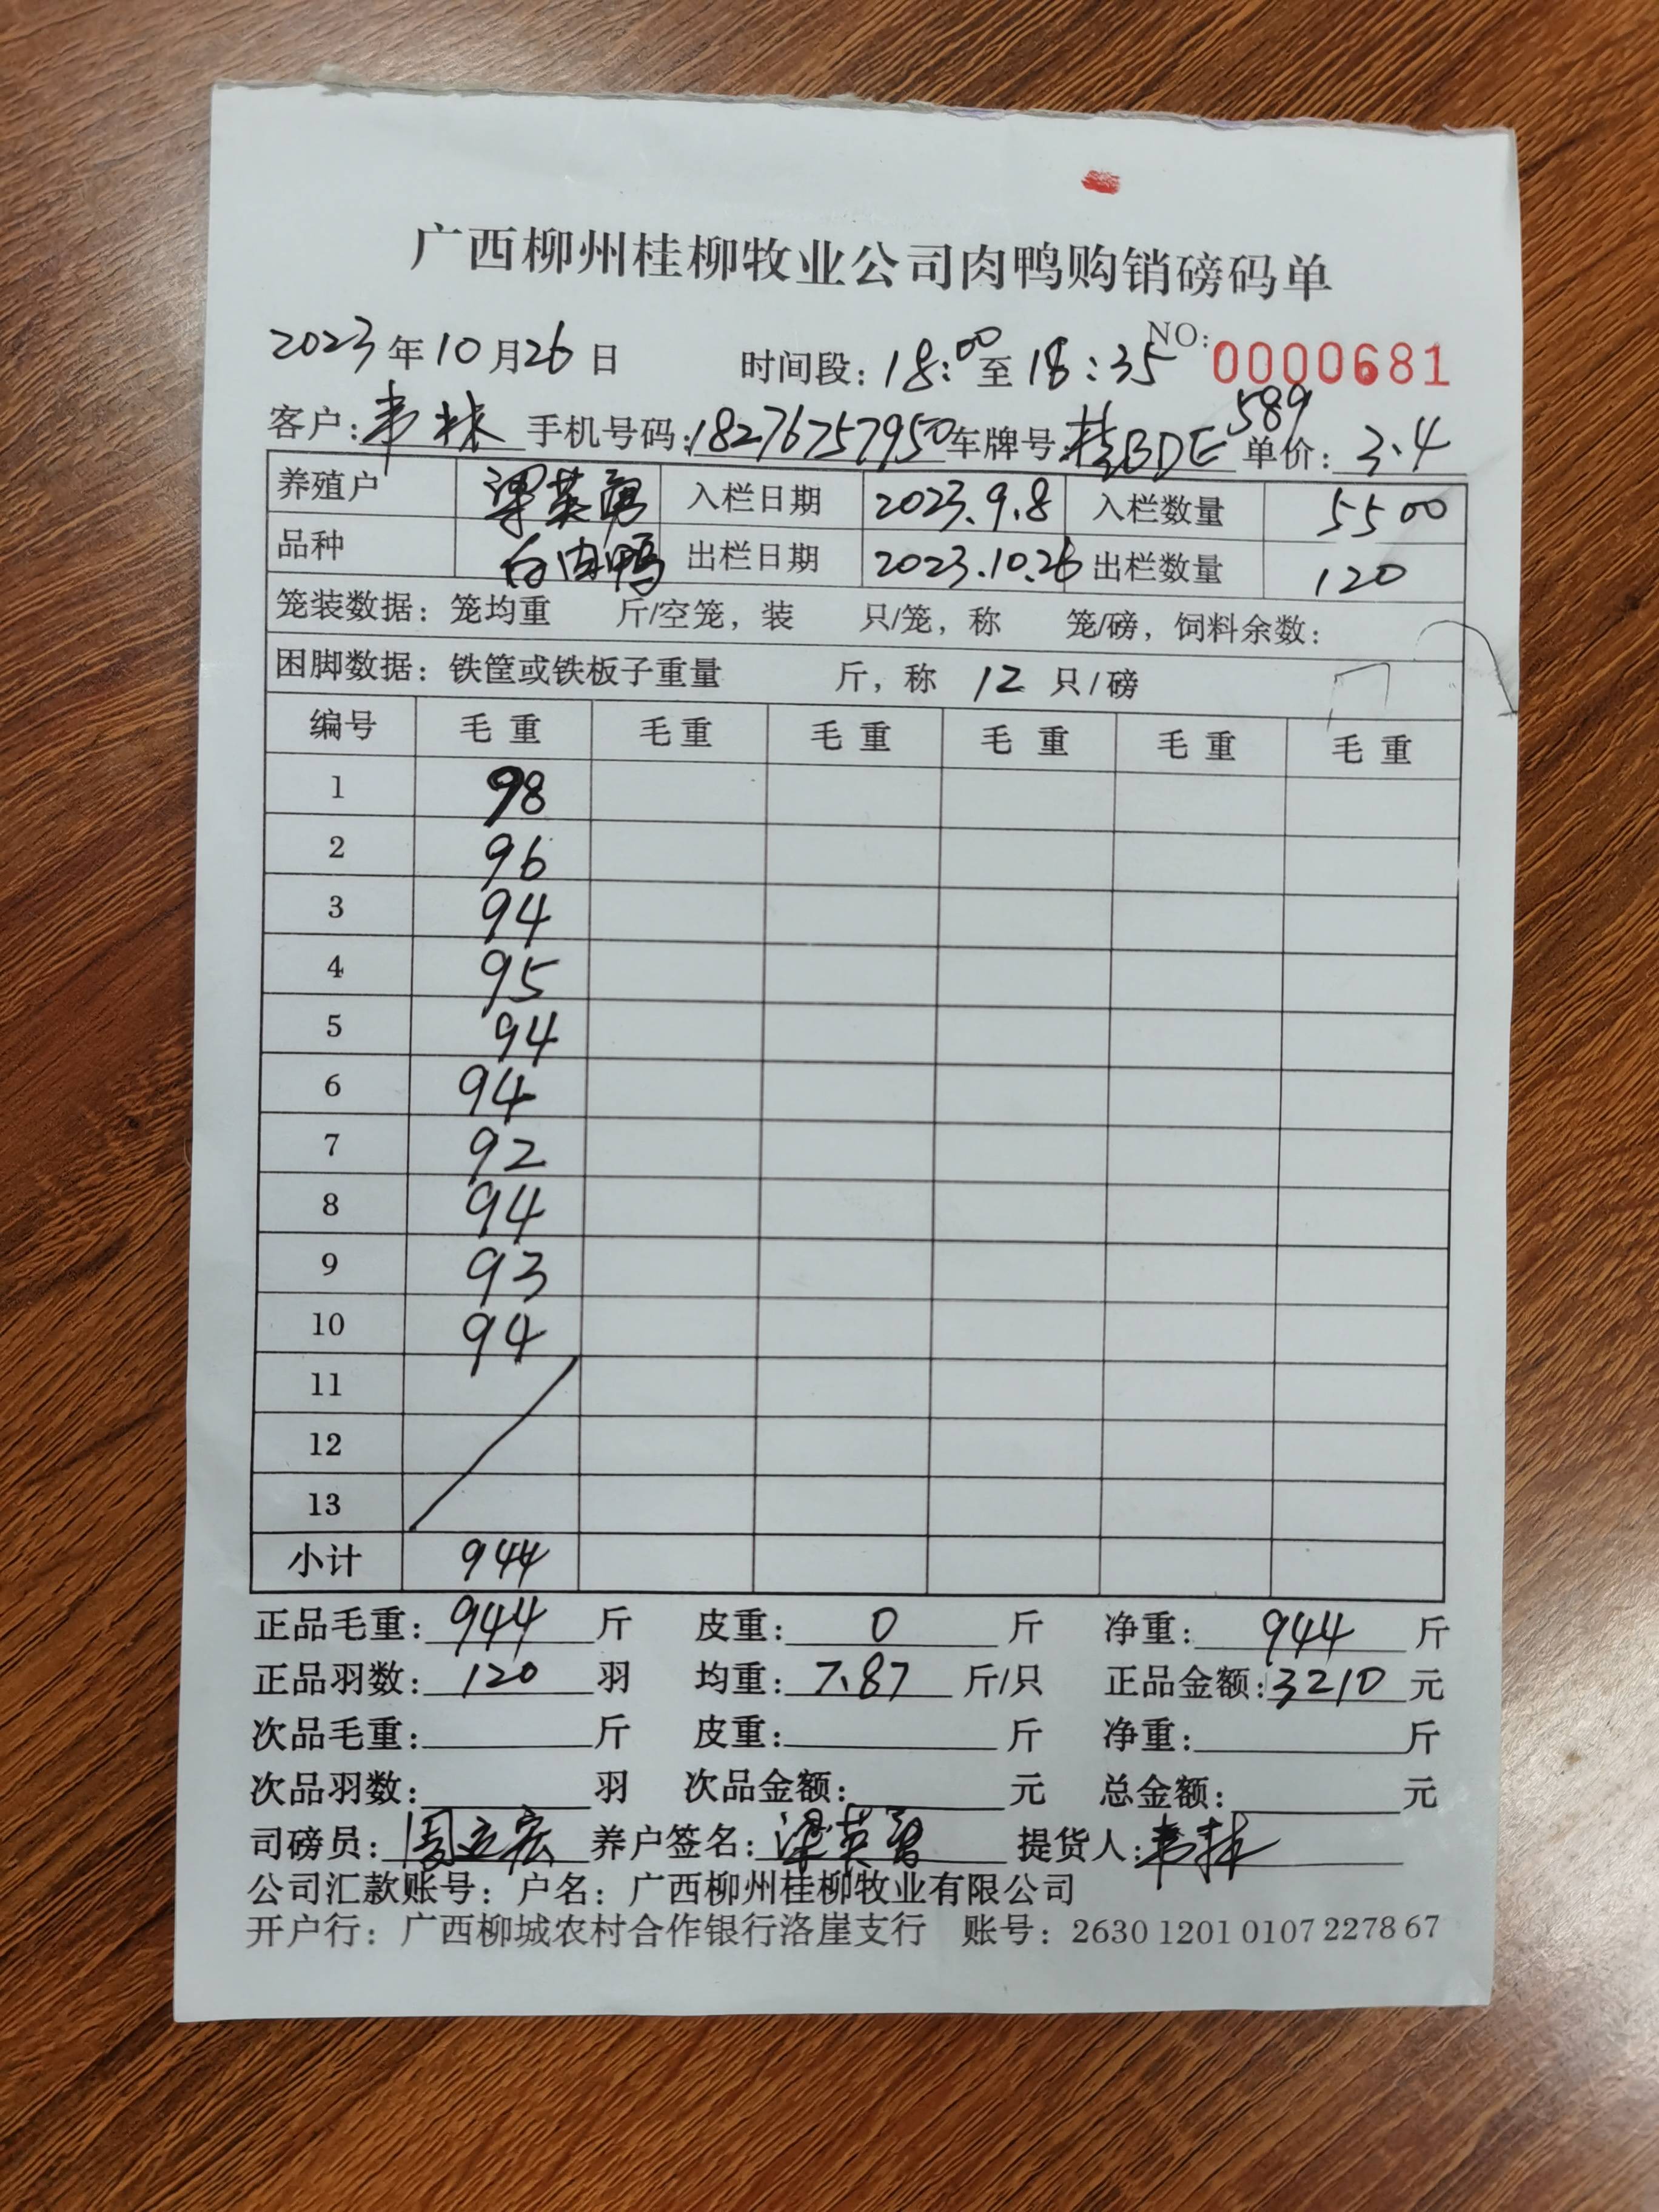 广西柳州桂柳牧业公司肉鸭购销磅码单
2023年10月26日 时间段：18:00至18:35 NO: 0000681
客户：韦林 手机号码：18276757950 车牌号：桂BDE589 单价：3.4
养殖户 梁英勇 入栏日期 2023.9.8 入栏数量 5500
品种 白肉鸭 出栏日期 2023.10.26 出栏数量 120
笼装数据：笼均重 斤/空笼，装 只/笼，称 笼/磅，饲料余数：
困脚数据：铁筐或铁板子重量 斤，称 12 只/磅
编号 毛重 毛重 毛重 毛重 毛重 毛重
1 98
2 96
3 94
4 95
5 94
6 94
7 92
8 94
9 93
10 94
11
12
13
小计 944
正品毛重：944 斤 皮重：0 斤 净重：944 斤
正品羽数：120 羽 均重：7.87 斤/只 正品金额：3210 元
次品毛重： 斤 皮重： 斤 净重： 斤
次品羽数： 羽 次品金额： 元 总金额： 元
司磅员：周立宏 养户签名：梁英勇 提货人：韦林
公司汇款账号：户名：广西柳州桂柳牧业有限公司
开户行：广西柳城农村合作银行洛崖支行 账号：2630 1201 0107 2278 67